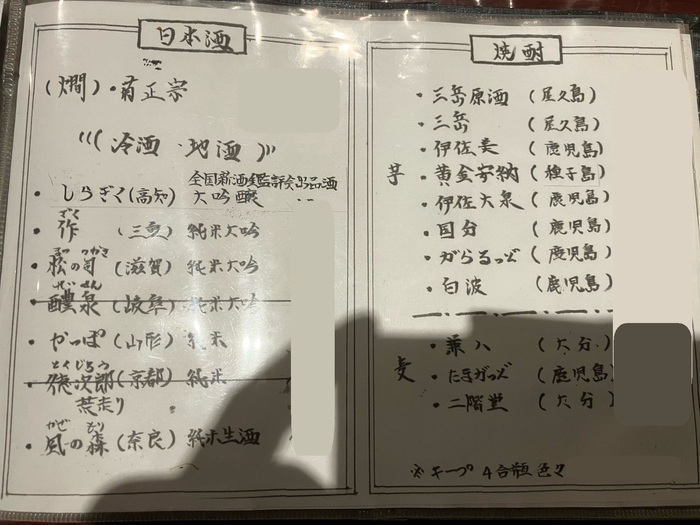 日本酒
(燗)・菊正宗
(冷酒・地酒)
全国新酒鑑評会出品酒
・しらぎく(高知) 大吟醸
ざく
・作 (三重) 純米大吟
まつ つかさ
・松の司 (滋賀) 純米大吟
ぜんせん
・醴泉 (岐阜) 純米大吟
・かっぱ(山形) 純米
とくじろう
・徳次郎(京都) 純米
荒走り
かぜ もり
・風の森(奈良) 純米生酒
焼酎
・三岳原酒 (屋久島)
・三岳 (屋久島)
・伊佐美 (鹿児島)
芋 ・黄金安納 (種子島)
・伊佐大泉 (鹿児島)
・国分 (鹿児島)
・がらるっど (鹿児島)
・白波 (鹿児島)
・兼八 (大分)
麦 ・たきがっど (鹿児島)
・二階堂 (大分)
※キープ 4合瓶 色々